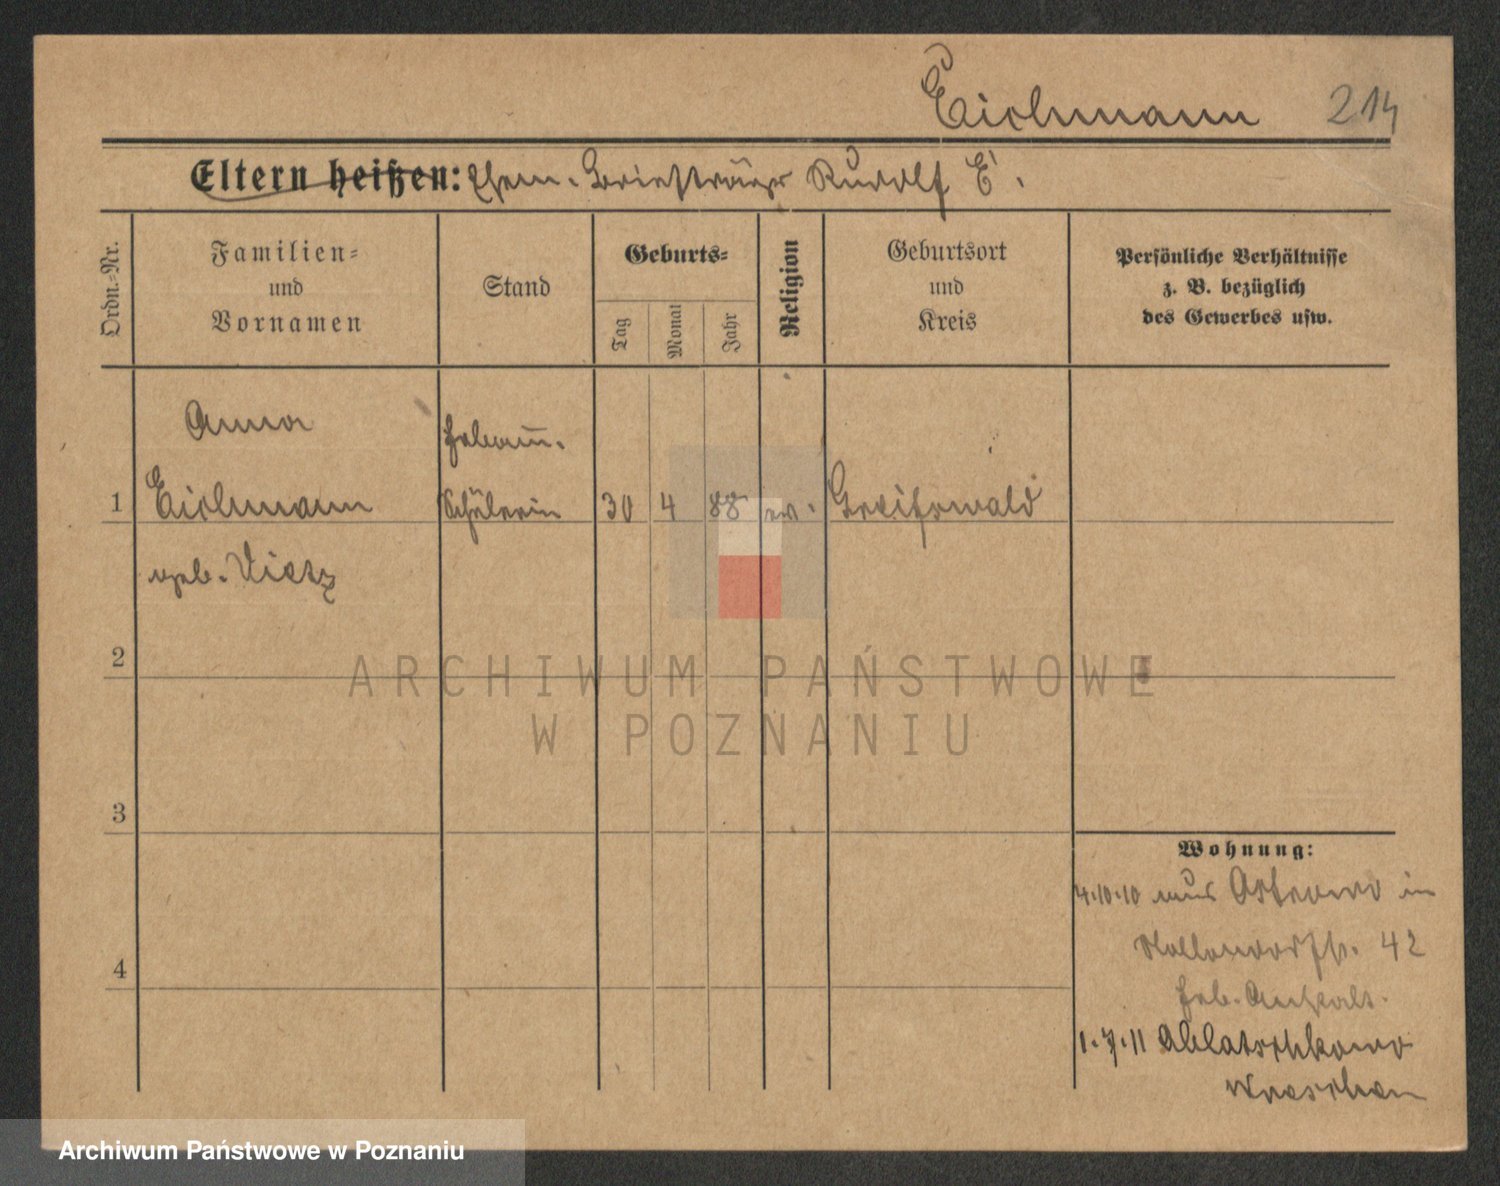 Eichmann 214
Eltern heißen: Ehem. Briefträger Rudolf E.
Ordn.-Nr.
Familien=
und
Vornamen
Stand
Geburts=
Tag
Monat
Jahr
Religion
Geburtsort
und
Kreis
Persönliche Verhältnisse
z. B. bezüglich
des Gewerbes usw.
Anna Hebam̄.
1 Eichmann Schülerin 30 4 88 ev. Greifswald
geb. Vietz
2
3
4
Wohnung:
4.10.10 aus Ostrowo in
42
Heb. Anstalt.
1.7.11
Wreschen
ARCHIWUM PAŃSTWOWE
W POZNANIU
Archiwum Państwowe w Poznaniu